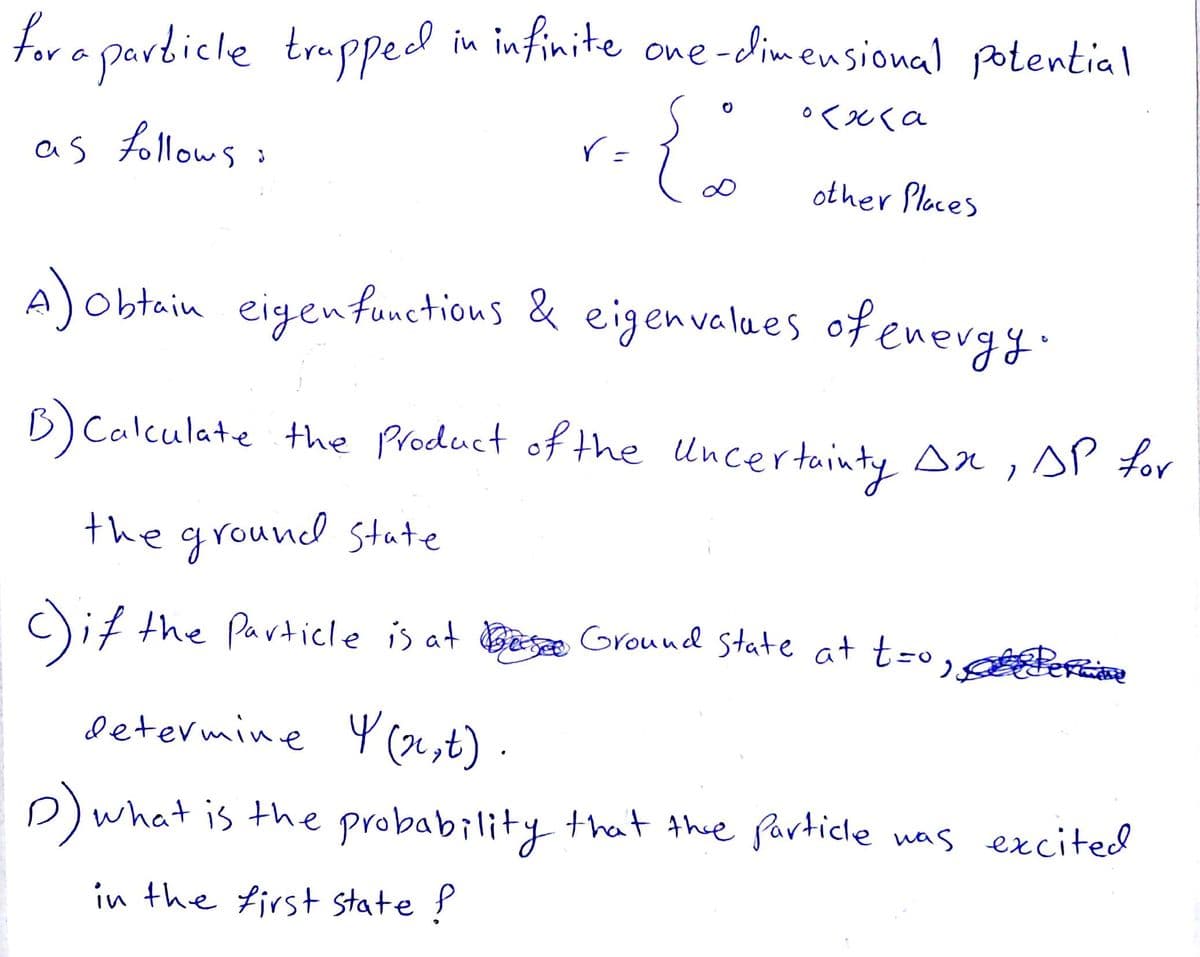 For a particle trapped in infinite one-dimensional potential
as follows: V = { 0 0<x<a
∞ other Places
A) Obtain eigenfunctions & eigenvalues of energy.
B) Calculate the Product of the Uncertainty Δx, ΔP for
the ground state
C) if the Particle is at Ground state at t=0,
determine Ψ(x,t).
D) what is the probability that the particle was excited
in the first state ?